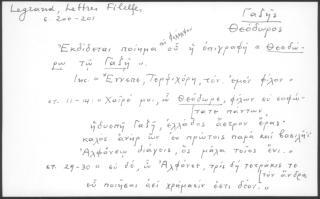 Legrand, Lettres Filelfe.
σ. 200-201
Γαζῆς
Θεόδωρος
Ἐκδίδεται ποίημα τοῦ Φιλέλφου οὗ ἡ ἐπιγραφή « Θεοδώ-
ρῳ τῷ Γαζῇ ».
Inc. « Ἔννεπε, Τερψιχόρη, τὸν ἐμὸν φίλον »
στ. 11-14: « Χαῖρέ μοι, ὦ Θεόδωρε, φίλων
τατε πάντων
ἡδυεπῆ Γαζῆ, ἑλλάδος ἄστρον
καλός ἀνὴρ ὢν ἐν πρώτοις παρὰ καὶ βασιλῆϊ
Ἀλφόνσῳ διάγοις, ὃς μάλα τοῖος ἔνι. »
στ. 29-30 « σὺ δέ, ὦ Ἀλφόνσε, τρὶς δὴ τετράκις τε
τὸν ἄνδρα
εὖ ποιῆσαι ἀεὶ χρήμασιν ἐστὶ δέον. »